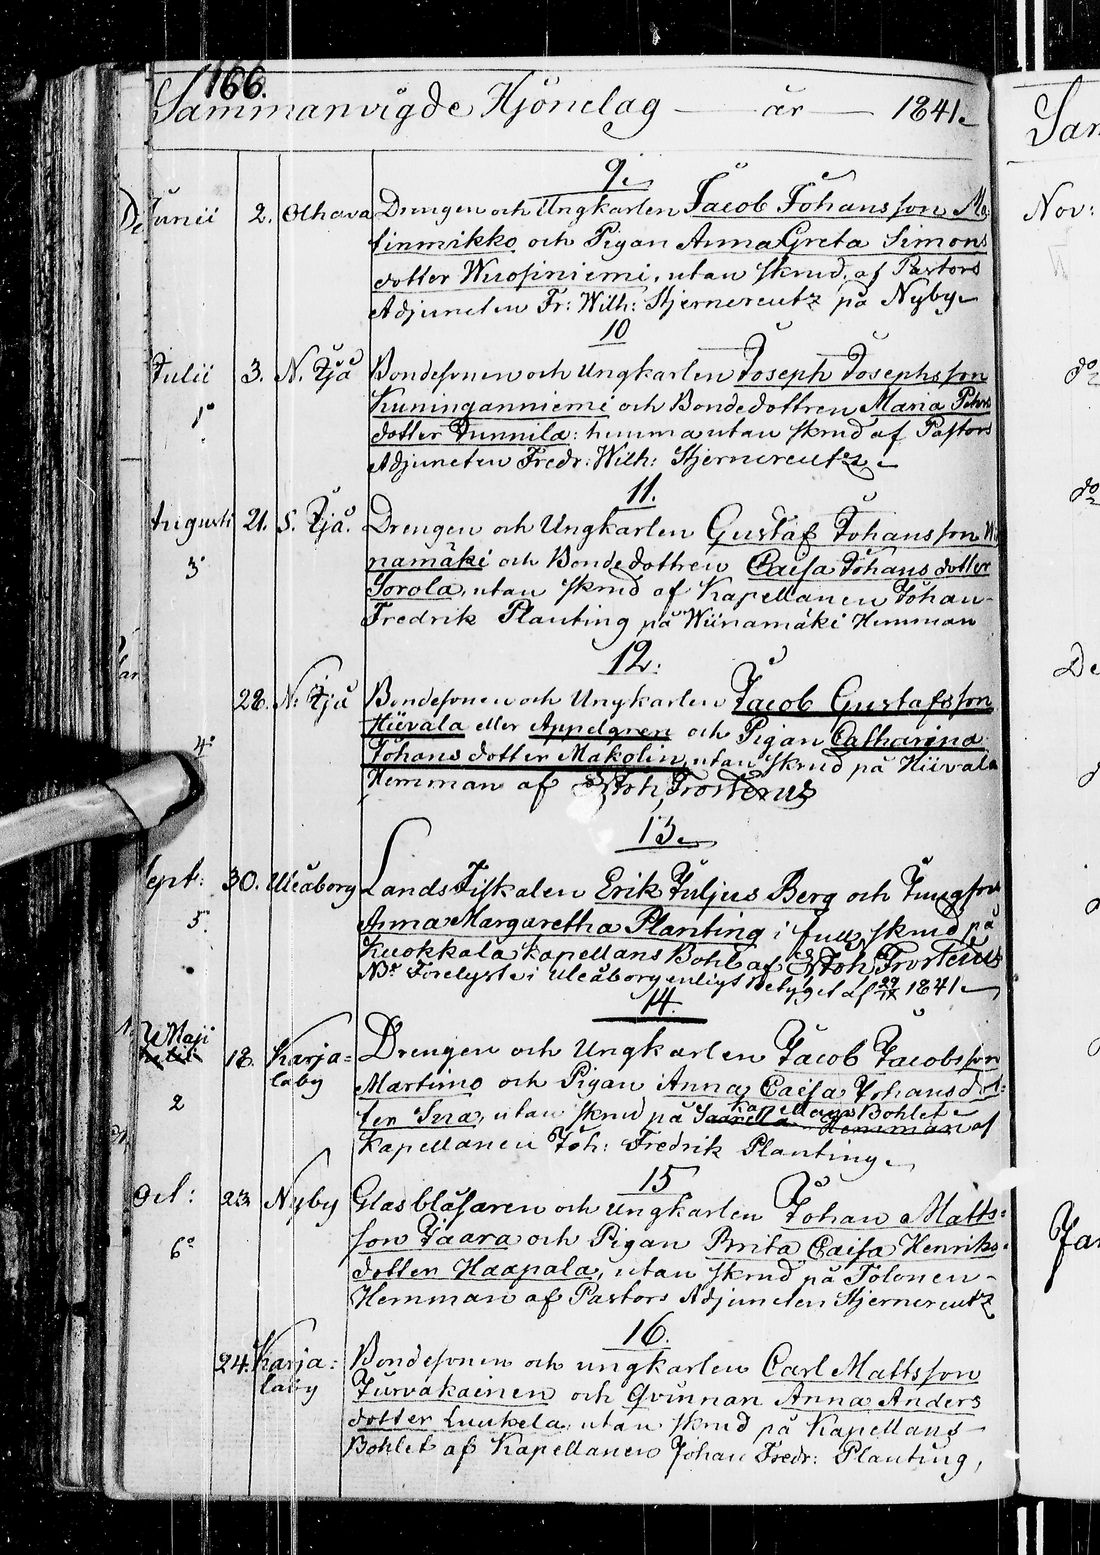 166.
Sammanvigde Hjonelag — år — 1841.
9.
Junii 2. Olhava Drengen och Ungkarlen Jacob Johansson Ma-
tinmikko och Pigan Anna Greta Simons
dotter Wuosiniemi, utan skrud, af Pastors
Adjuncten Fr: Wilh: Stjernereutz på Nyby
10
Julii 3. N. Ijå Bondesonen och Ungkarlen Joseph Josephsson
1° Kuninganniemi och Bondedottren Maria Pehrs
dotter Tunnila: hemma utan skrud af Pastors
Adjuncten Fredr: Wilh: Stjernereutz
11.
Augusti 21. S. Ijå. Drengen och Ungkarlen Gustaf Johansson Wii
3 namäki och Bondedottren Caisa Johansdotter
Sorola, utan skrud af Kapellanen Johan
Fredrik Planting på Wiinamäki Hemman
12.
28. N. Ijå Bondesonen och Ungkarlen Jacob Gustafsson
Hiivala eller Appelgren och Pigan Catharina
4° Johansdotter Makolin, utan skrud på Hiivala
Hemman af Joh Frosterus
13.
Sept: 30. Uleåborg Lands Fiskalen Erik Juljus Berg och Jungfrun
5. Anna Margaretha Planting i full skrud på
Kuokkala Kapellans Bohl af Joh Frosterus
NB Förelyste i Uleåborg enligt betyget af 29/IX 1841.
14.
Maji 18. Karja=
laby Drengen och Ungkarlen Jacob Jacobsson
2 Martimo och Pigan Anna Caisa Johansdot-
ter Isra, utan skrud på Kapellans Bohlet af
Kapellanen Joh: Fredrik Planting
15
Oct: 23 Nyby Glasblåsaren och ungkarlen Johan Matts=
6° son Paara och Pigan Brita Caisa Henriks-
dotter Haapala, utan skrud på Tolonen
Hemman af Pastors Adjuncten Stjernereutz
16.
24. Karja=
laby Bondesonen och ungkarlen Carl Mattsson
Jurvakainen och Qvinnan Anna Anders
dotter Luukela, utan skrud på Kapellans
Bohlet af Kapellanen Johan Fredr: Planting,
Nov: